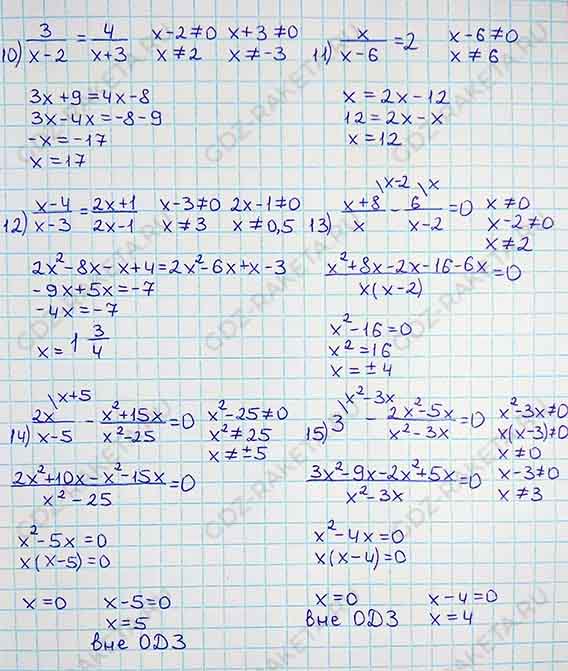 10) 3/(x-2) = 4/(x+3)   x-2≠0   x+3≠0
x≠2   x≠-3
3x+9=4x-8
3x-4x=-8-9
-x=-17
x=17
11) x/(x-6) = 2   x-6≠0
x≠6
x=2x-12
12=2x-x
x=12
12) (x-4)/(x-3) = (2x+1)/(2x-1)   x-3≠0   2x-1≠0
x≠3   x≠0,5
2x²-8x-x+4=2x²-6x+x-3
-9x+5x=-7
-4x=-7
x=1 3/4
13) (x+8)/x \x-2 - 6/(x-2) \x =0   x≠0
x-2≠0
x≠2
(x²+8x-2x-16-6x)/(x(x-2)) =0
x²-16=0
x²=16
x=±4
14) 2x/(x-5) \x+5 - (x²+15x)/(x²-25) =0   x²-25≠0
x²≠25
x≠±5
(2x²+10x-x²-15x)/(x²-25) =0
x²-5x=0
x(x-5)=0
x=0   x-5=0
x=5
вне ОДЗ
15) 3 \x²-3x - (2x²-5x)/(x²-3x) =0   x²-3x≠0
x(x-3)≠0
x≠0
x-3≠0
x≠3
(3x²-9x-2x²+5x)/(x²-3x) =0
x²-4x=0
x(x-4)=0
x=0   x-4=0
вне ОДЗ   x=4
GDZ-RAKETA.RU